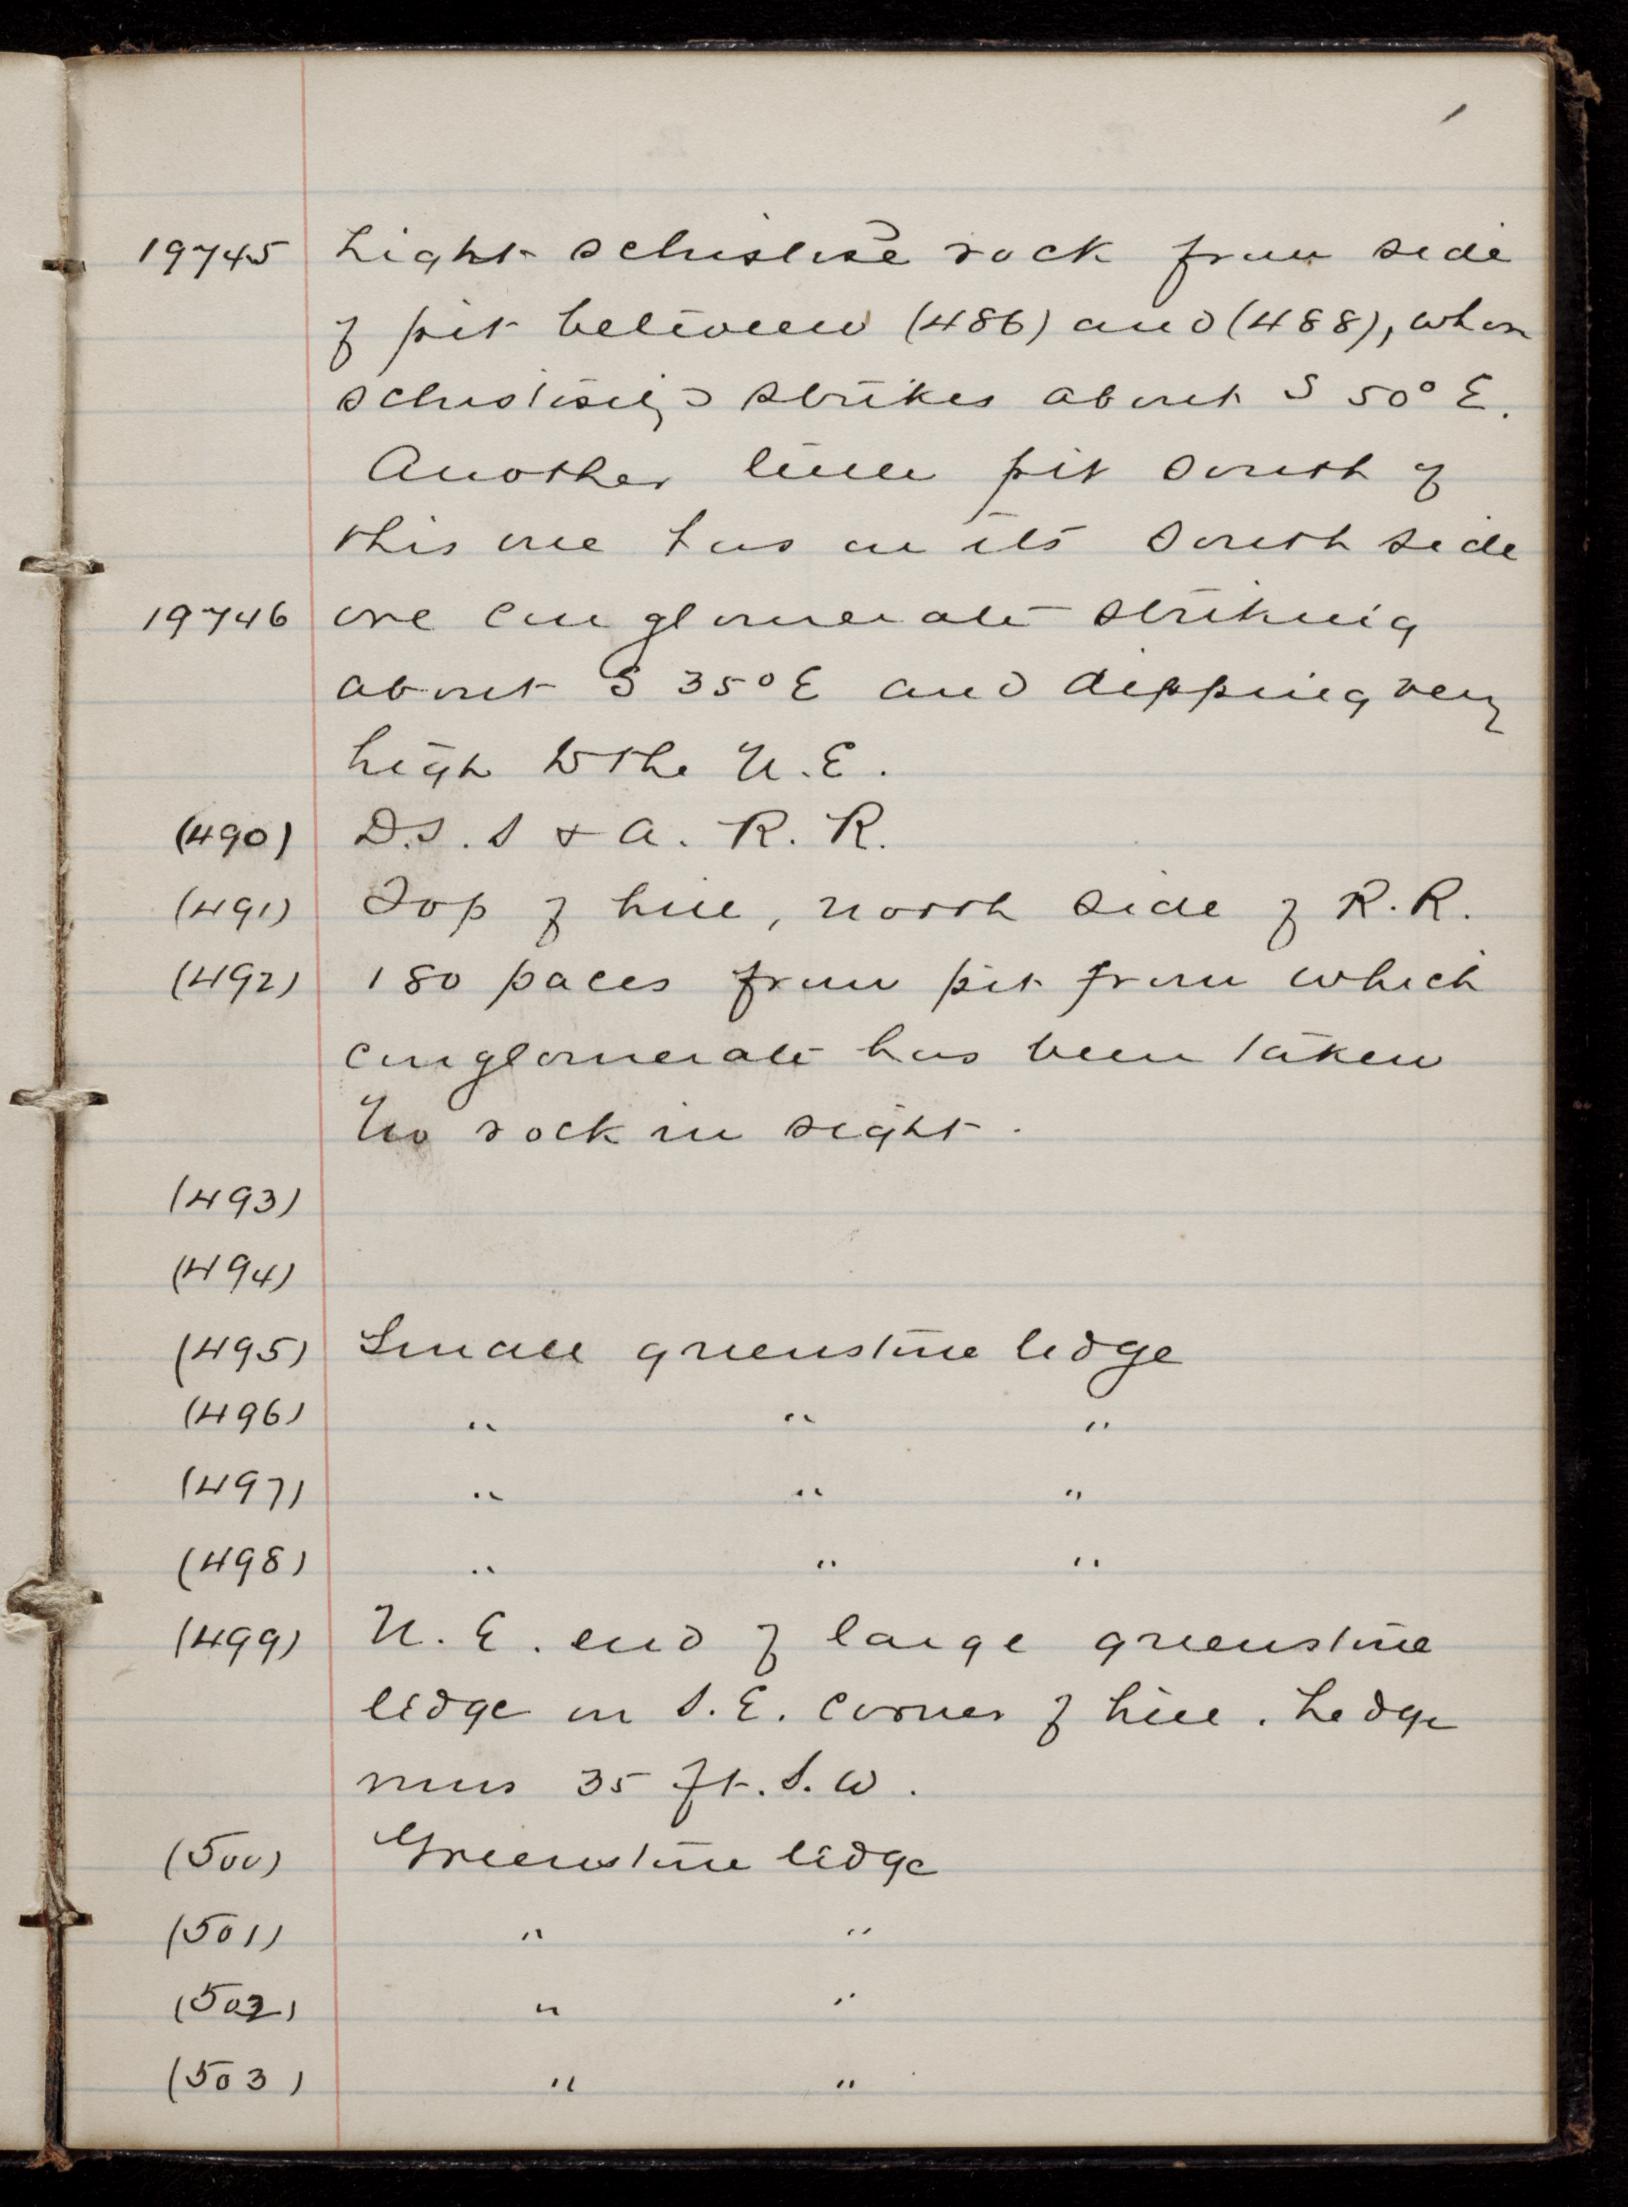 1
19745 Light schistose rock from side
of pit between (486) and (488), where
schistosity strikes about S 50° E.
Another little pit south of
this one has on its south side
19746 ore conglomerate striking
about S 35° E and dipping very
high to the N.E.
(490) D.S. S & A. R. R.
(491) Top of hill, north side of R.R.
(492) 180 paces from pit from which
conglomerate has been taken
No rock in sight.
(493)
(494)
(495) Small greenstone ledge
(496) " " "
(497) " " "
(498) " " "
(499) N. E. end of large greenstone
ledge on S.E. corner of hill. Ledge
runs 35 ft. S.W.
(500) Greenstone ledge
(501) " "
(502) " "
(503) " "